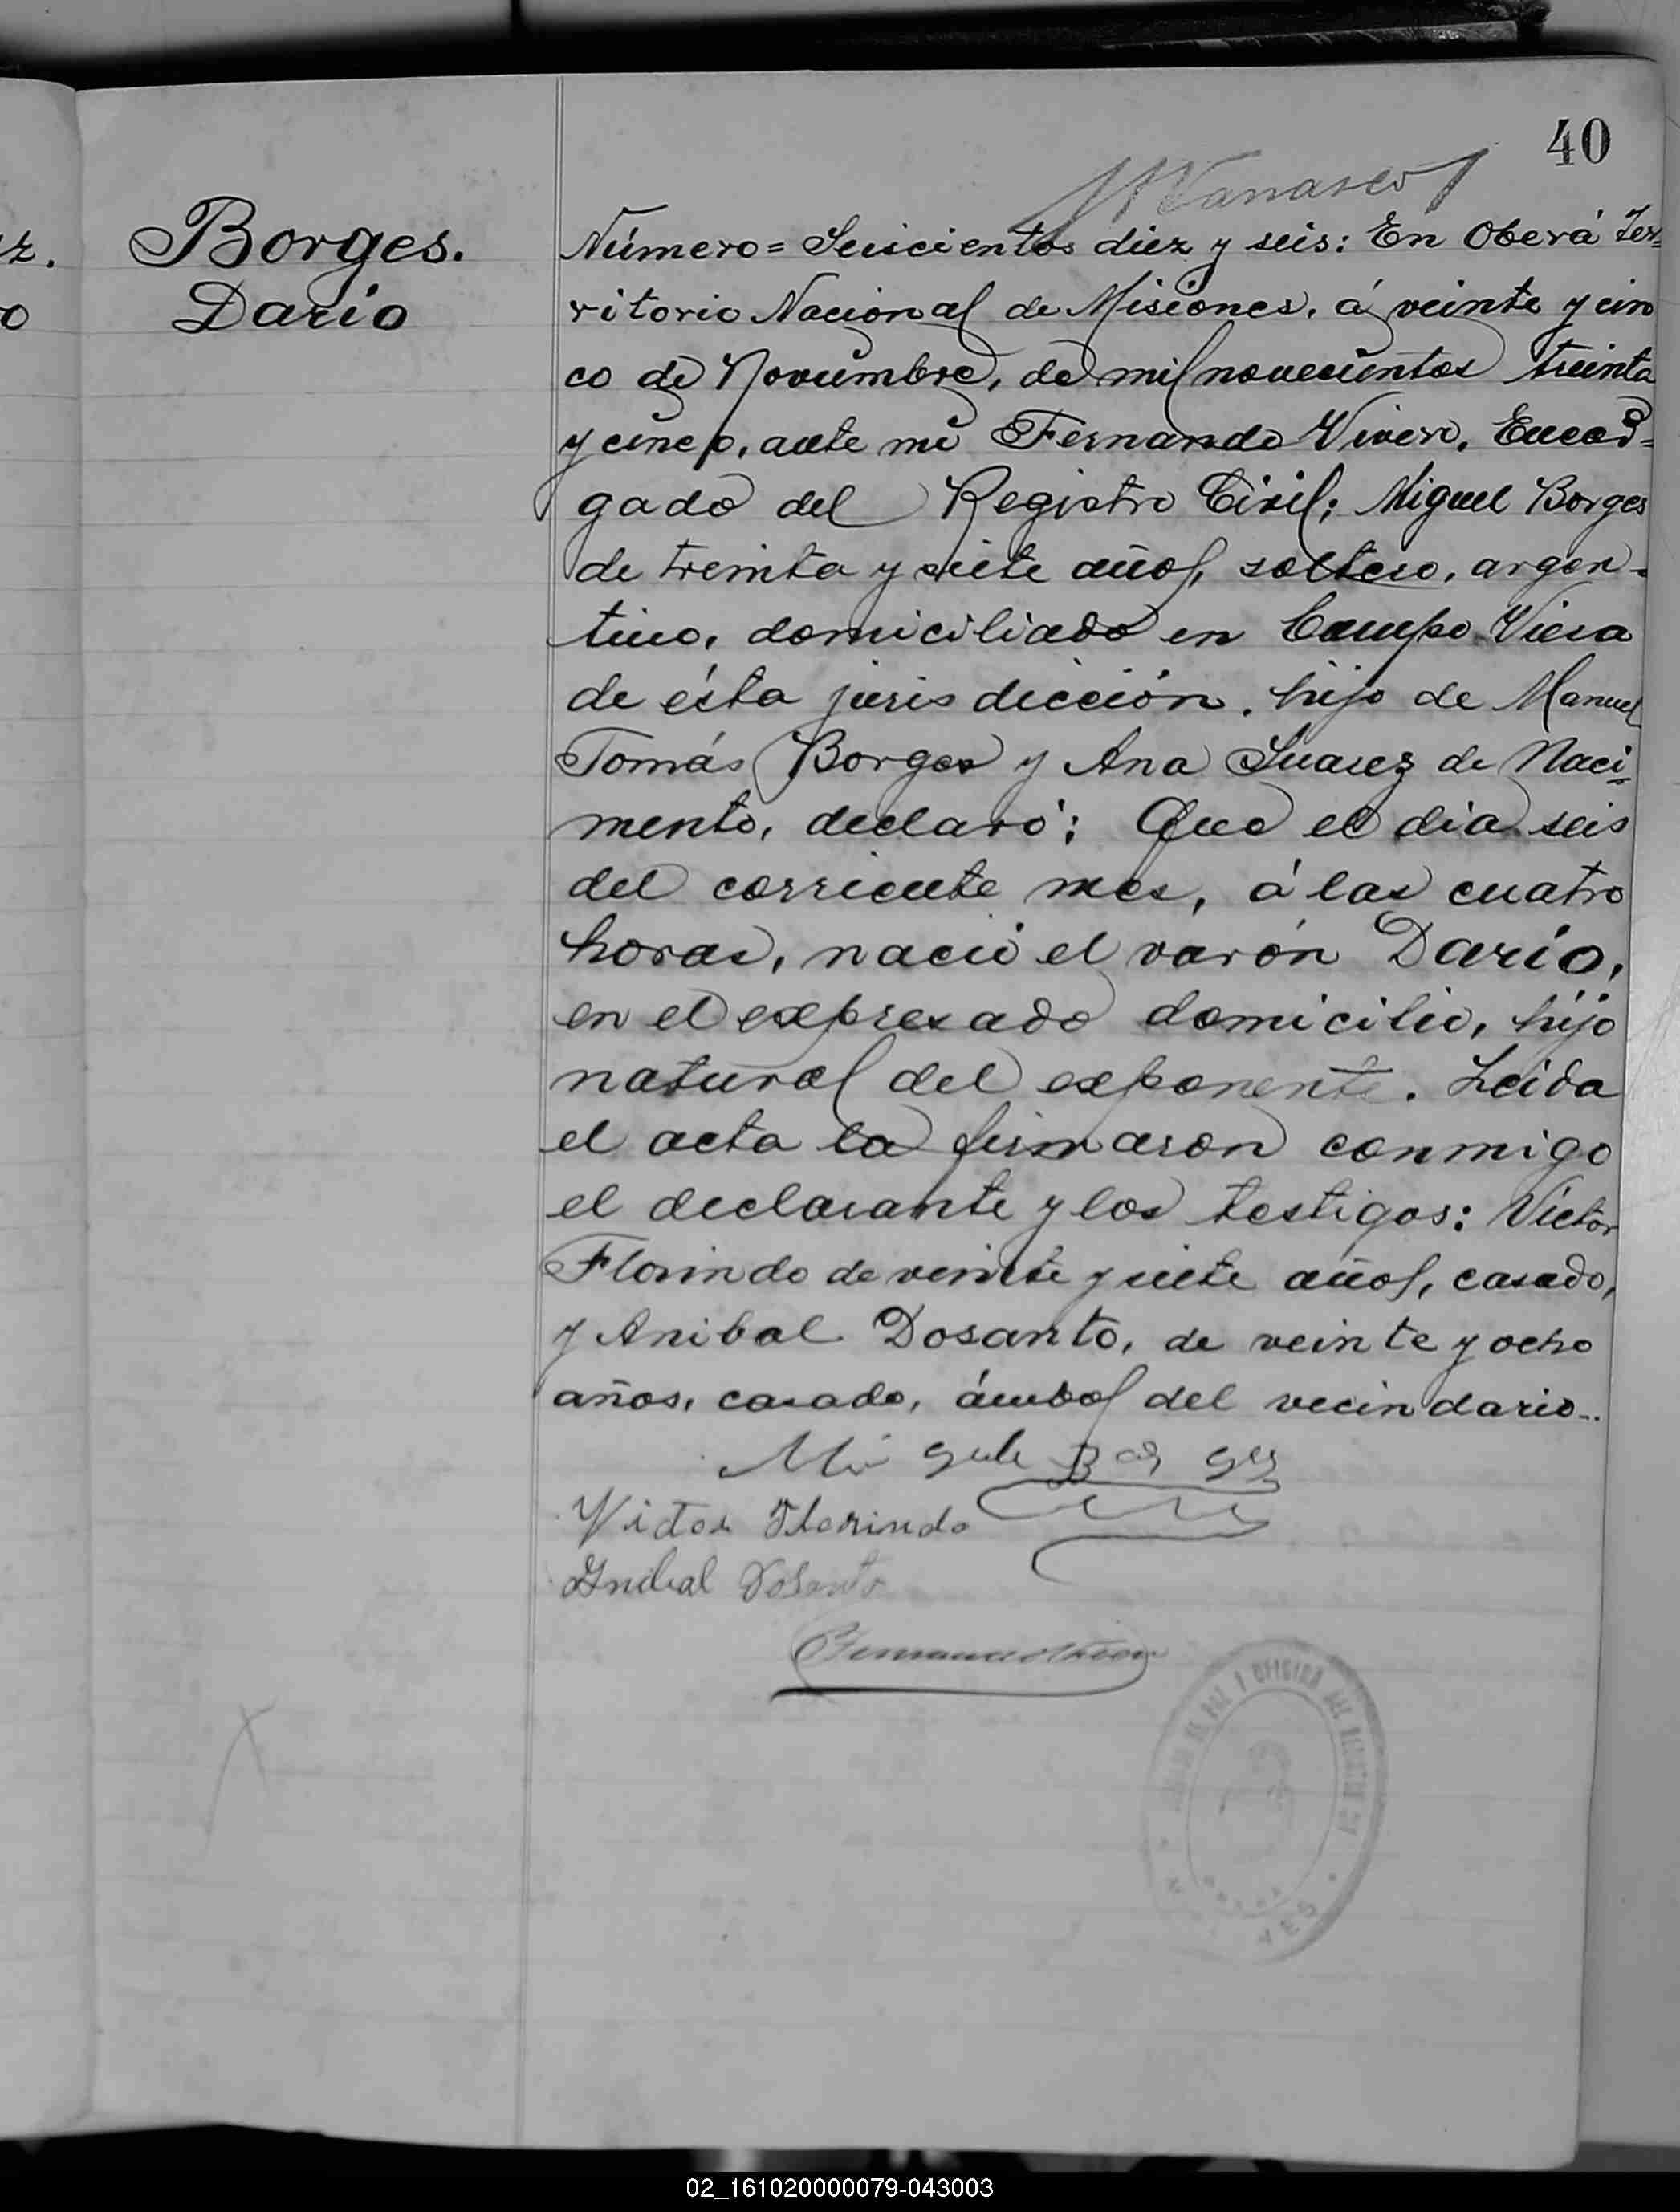 40
Vanasco
z.
o
Borges.
Darío
Número = Seiscientos diez y seis: En Oberá Ter=
ritorio Nacional de Misiones, á veinte y cin
co de Noviembre, de mil novecientos treinta
y cinco, ante mi Fernando Vivero, Encar=
gado del Registro Civil; Miguel Borges
de treinta y siete años, soltero, argen-
tino, domiciliado en Campo Viera
de ésta jurisdicción, hijo de Manuel
Tomás Borges y Ana Suarez de Naci=
mento, declaró: Que el dia seis
del corriente mes, á las cuatro
horas, nació el varón Darío,
en el expresado domicilio, hijo
natural del exponente. Leida
el acta la firmaron conmigo
el declarante y los testigos: Víctor
Florindo de veinte y siete años, casado,
y Anibal Dosanto, de veinte y ocho
años, casado, ámbos del vecindario..
Mi gule Bor ges
Victor Florindo
Anibal Dosanto
DE PAZ Y OFICINA DEL REGISTRO
02_161020000079-043003